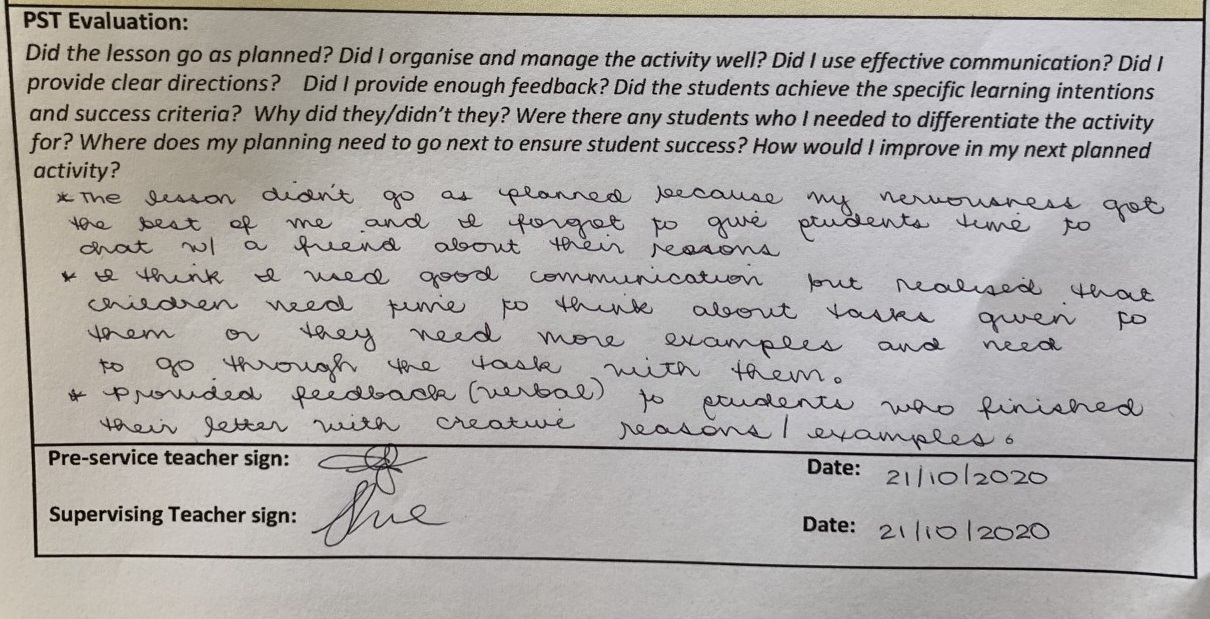 PST Evaluation:
Did the lesson go as planned? Did I organise and manage the activity well? Did I use effective communication? Did I
provide clear directions? Did I provide enough feedback? Did the students achieve the specific learning intentions
and success criteria? Why did they/didn't they? Were there any students who I needed to differentiate the activity
for? Where does my planning need to go next to ensure student success? How would I improve in my next planned
activity?
* The lesson didn't go as planned because my nervousness got
the best of me and I forgot to give students time to
chat w/ a friend about their reasons
* I think I used good communication but realised that
children need time to think about tasks given to
them or they need more examples and need
to go through the task with them.
* Provided feedback (verbal) to students who finished
their letter with creative reasons / examples.
Pre-service teacher sign: Date: 21/10/2020
Supervising Teacher sign: Sue Date: 21/10/2020